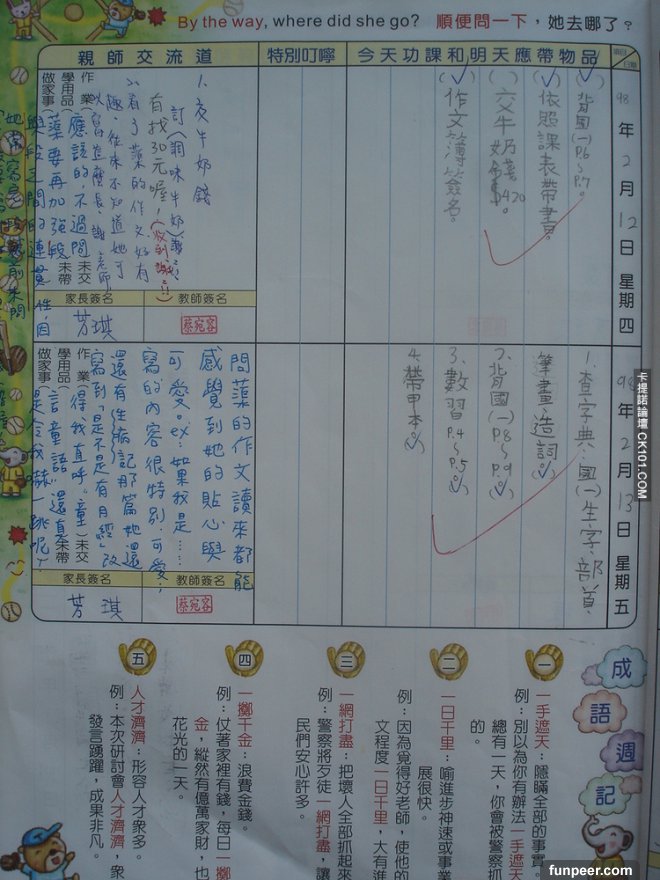 By the way, where did she go? 順便問一下，她去哪了？
親師交流道
特別叮嚀
今天功課和明天應帶物品
項目
日期
98年2月12日 星期四
背國(一)P.6～P.7。
依照課表帶書。
交牛奶錢$420。
作文簿簽名。
1. 交牛奶錢
訂(調味牛奶)
有找30元喔！
2. 看了蘋的作文,好有
趣,從來不知道她可
以寫這麼長,謝謝老師
應該的,不過問
蘋要再加強段
與段之間的連貫性,因
作業
學用品
做家事
未交
未帶
家長簽名
教師簽名
芳琪
蔡宛容
98年2月13日 星期五
1. 查字典:國(一)生字、部首、
筆畫、造詞。
2. 背國(一)P.8～P.9。
3. 數習P.4～P.5。
4. 帶甲本。
問蘋的作文讀來都能
感覺到她的貼心與
可愛。ex:如果我是……
寫的內容很特別、可愛,
還有性騷記那篇她還
寫到「是不是有月經」改
得我直呼。童
言童語,還真
是令我嚇一跳呢!
作業
學用品
做家事
未交
未帶
家長簽名
教師簽名
芳琪
蔡宛容
成語週記
一
一手遮天：隱瞞全部的事實。
例：別以為你有辦法一手遮天
總有一天，你會被警察抓
的。
二
一日千里：喻進步神速或事業
展很快。
例：因為覺得好老師，使他的
文程度一日千里，大有進
三
一網打盡：把壞人全部抓起來
例：警察將歹徒一網打盡，讓
民們安心許多。
四
一擲千金：浪費金錢。
例：仗著家裡有錢，每日一擲
金，縱然有億萬家財，也
花光的一天。
五
人才濟濟：形容人才眾多。
例：本次研討會人才濟濟，眾
發言踴躍，成果非凡。
卡提諾論壇 CK101.com
funpeer.com